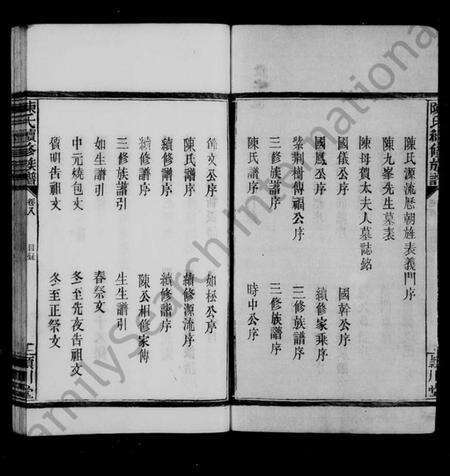 陳氏續修族譜
陳氏源流歷朝旌表義門序
陳九峯先生墓表
陳母賀太夫人墓誌銘
國儀公序
國幹公序
國鳳公序
續修家乘序
紫荆樹傳福公序
二修族譜序
三修族譜序
三修族譜序
陳氏譜序
時中公序
頴川堂
陳氏續修族譜
卷八
目錄
頴川堂
文公序
如極公序
陳氏譜序
續修源流序
續修譜序
續修譜序
續修譜序
陳公相修家傳
三修族譜引
生生譜引
如生譜引
春祭文
中元燒包文
冬至先夜告祖文
清明告祖文
冬至正祭文
FamilySearch International